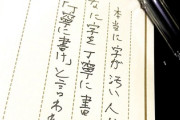 本当に字が汚い人
なに字を丁寧に書
「丁寧に書け」と言われ